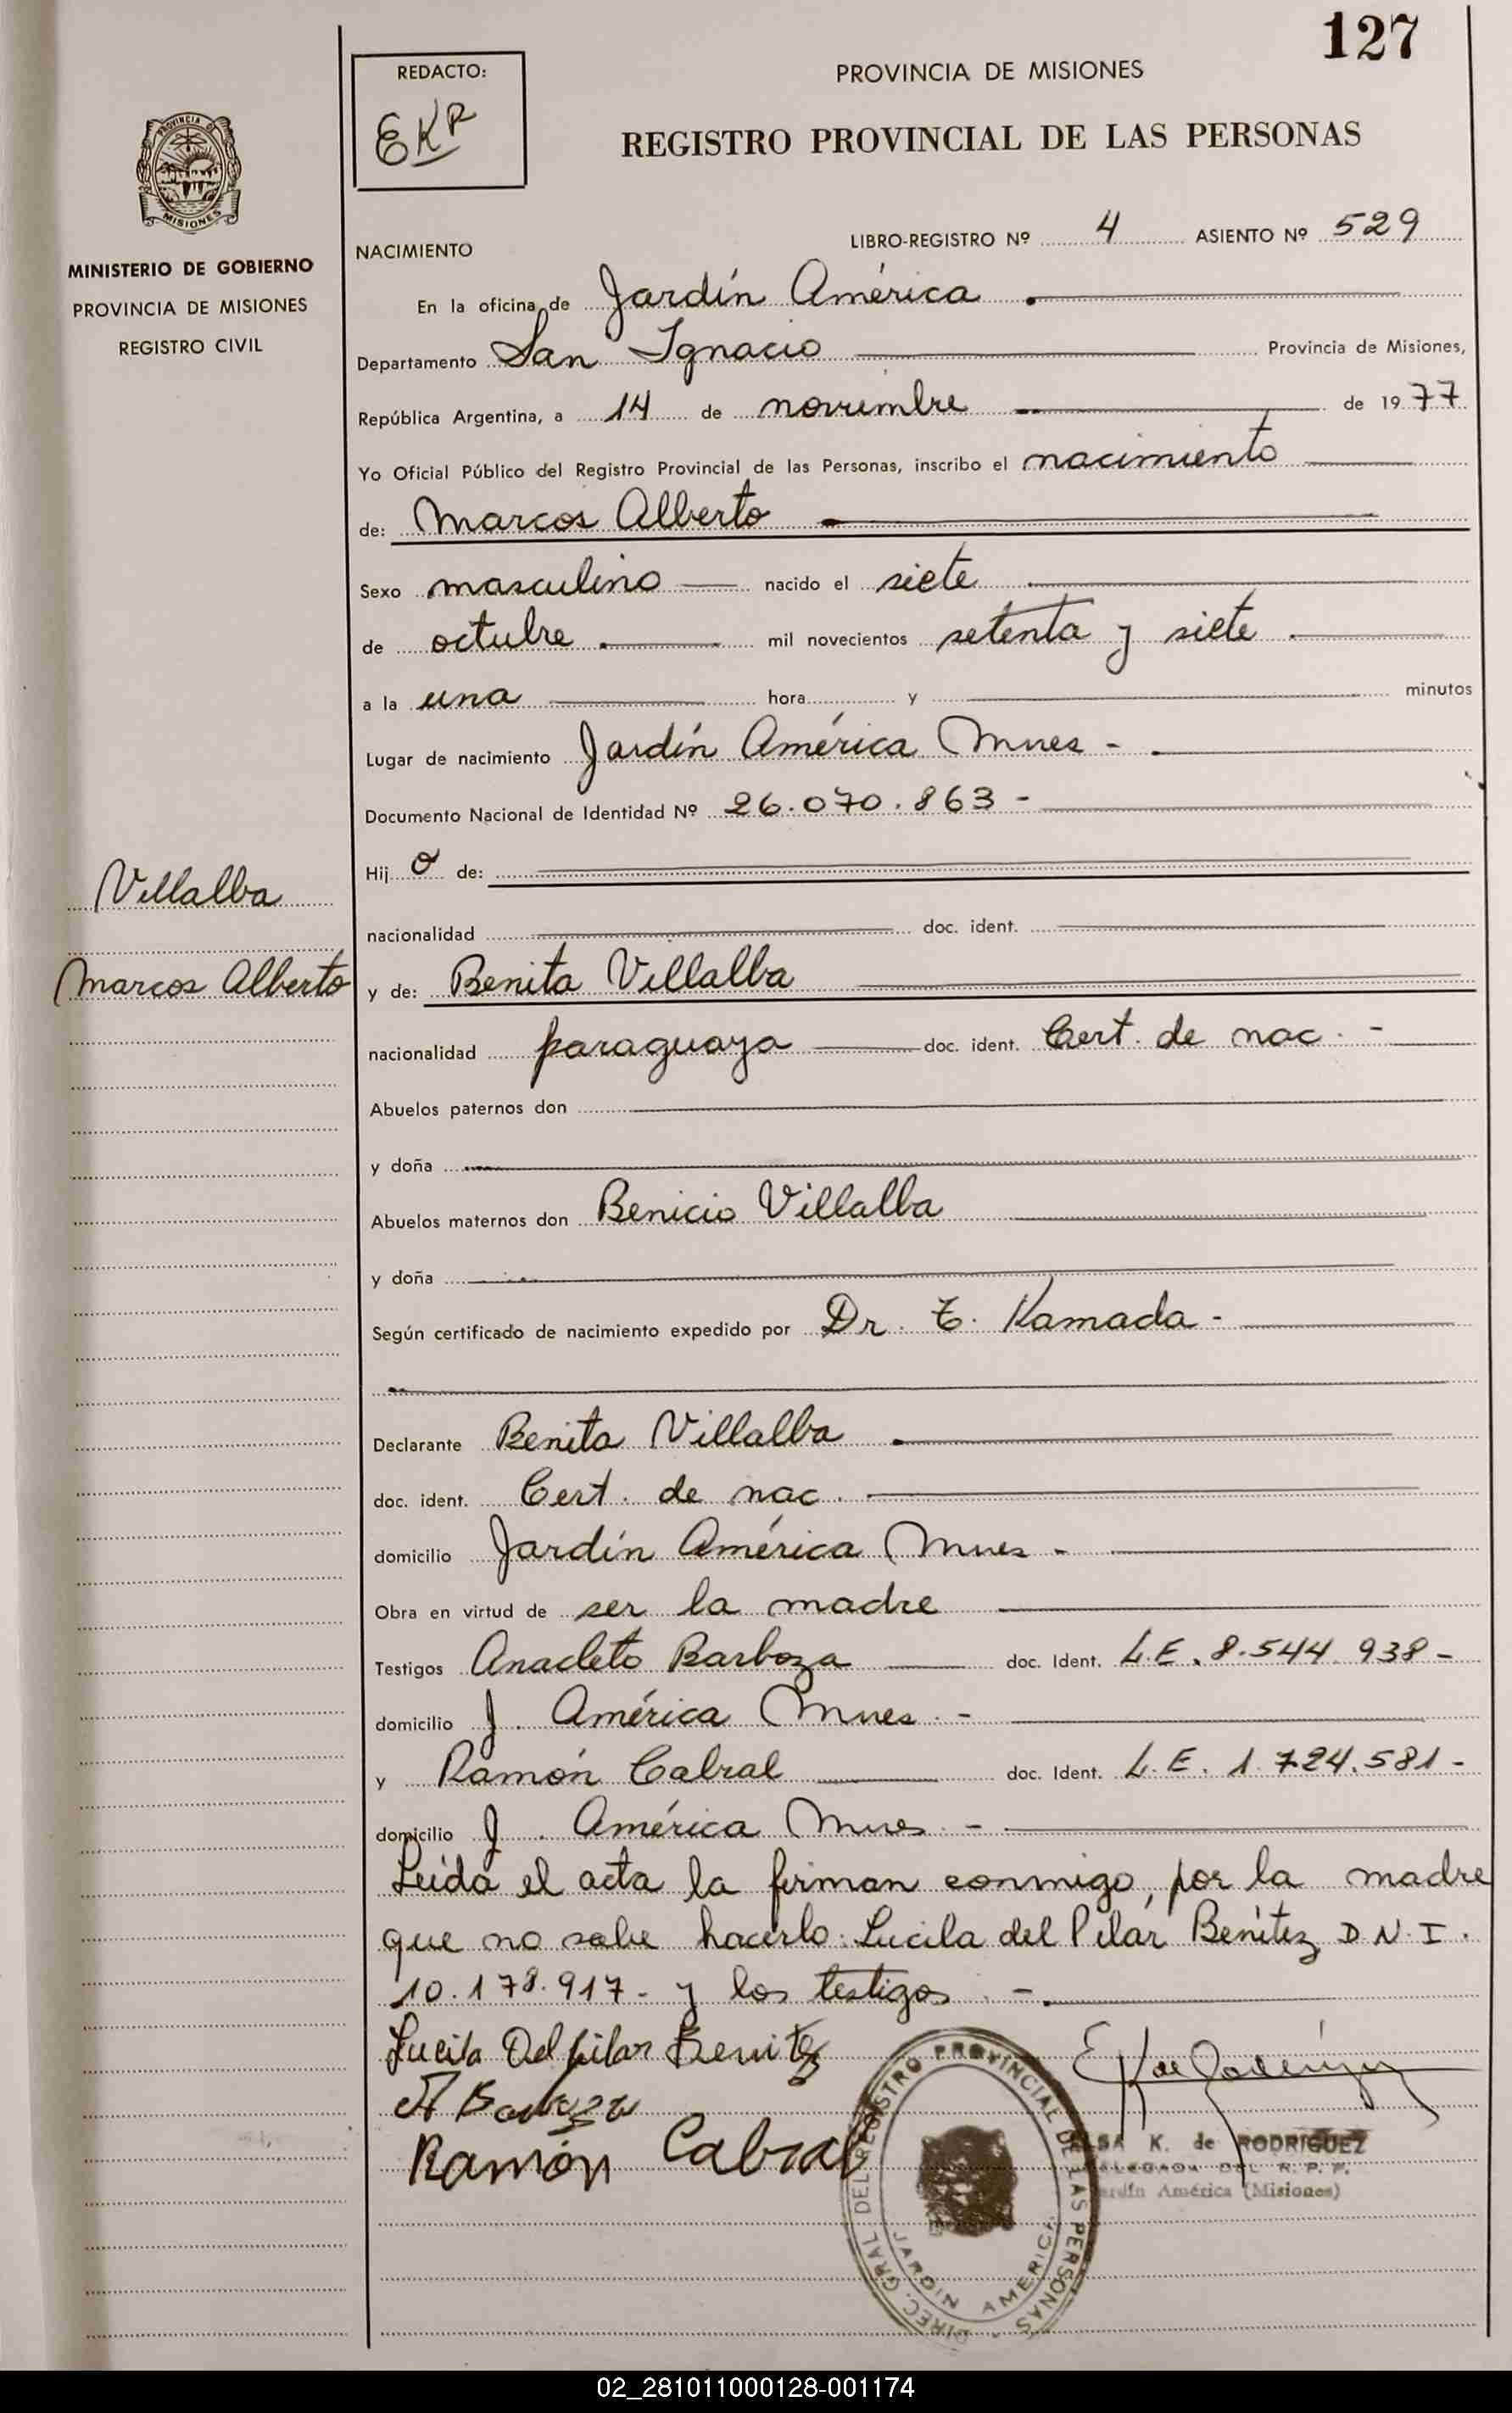 127
REDACTO:
EKR
PROVINCIA DE MISIONES
REGISTRO PROVINCIAL DE LAS PERSONAS
PROVINCIA D
MISIONES
MINISTERIO DE GOBIERNO
PROVINCIA DE MISIONES
REGISTRO CIVIL
NACIMIENTO
LIBRO-REGISTRO Nº 4 ASIENTO Nº 529
En la oficina de Jardín América
Departamento San Ignacio Provincia de Misiones,
República Argentina, a 14 de noviembre de 1977
Yo Oficial Público del Registro Provincial de las Personas, inscribo el nacimiento
de: Marcos Alberto
Sexo masculino nacido el siete
de octubre mil novecientos setenta y siete
a la una hora y minutos
Lugar de nacimiento Jardín América Mnes -
Documento Nacional de Identidad Nº 26.070.863 -
Hij o de:
Villalba
nacionalidad doc. ident.
Marcos Alberto
y de: Benita Villalba
nacionalidad paraguaya doc. ident. Cert. de nac. -
Abuelos paternos don
y doña
Abuelos maternos don Benicio Villalba
y doña
Según certificado de nacimiento expedido por Dr. T. Kamada -
Declarante Benita Villalba
doc. ident. Cert. de nac.
domicilio Jardín América Mnes -
Obra en virtud de ser la madre
Testigos Anacleto Barboza doc. Ident. L.E. 8.544.938 -
domicilio J. América Mnes. -
y Ramón Cabral doc. Ident. L.E. 1.724.581 -
domicilio J. América Mnes. -
Leida el acta la firman conmigo, por la madre
que no sabe hacerlo: Lucila del Pilar Benítez D.N.I.
10.178.917 - y los testigos. -
Lucila Del pilar Benitez
A Barboza
Ramón Cabral
DIREC. GRAL DEL REGISTRO PROVINCIAL DE LAS PERSONAS
JARDIN AMERICA
ELSA K. de RODRIGUEZ
DELEGADA DEL R. P. P.
Jardín América (Misiones)
02_281011000128-001174